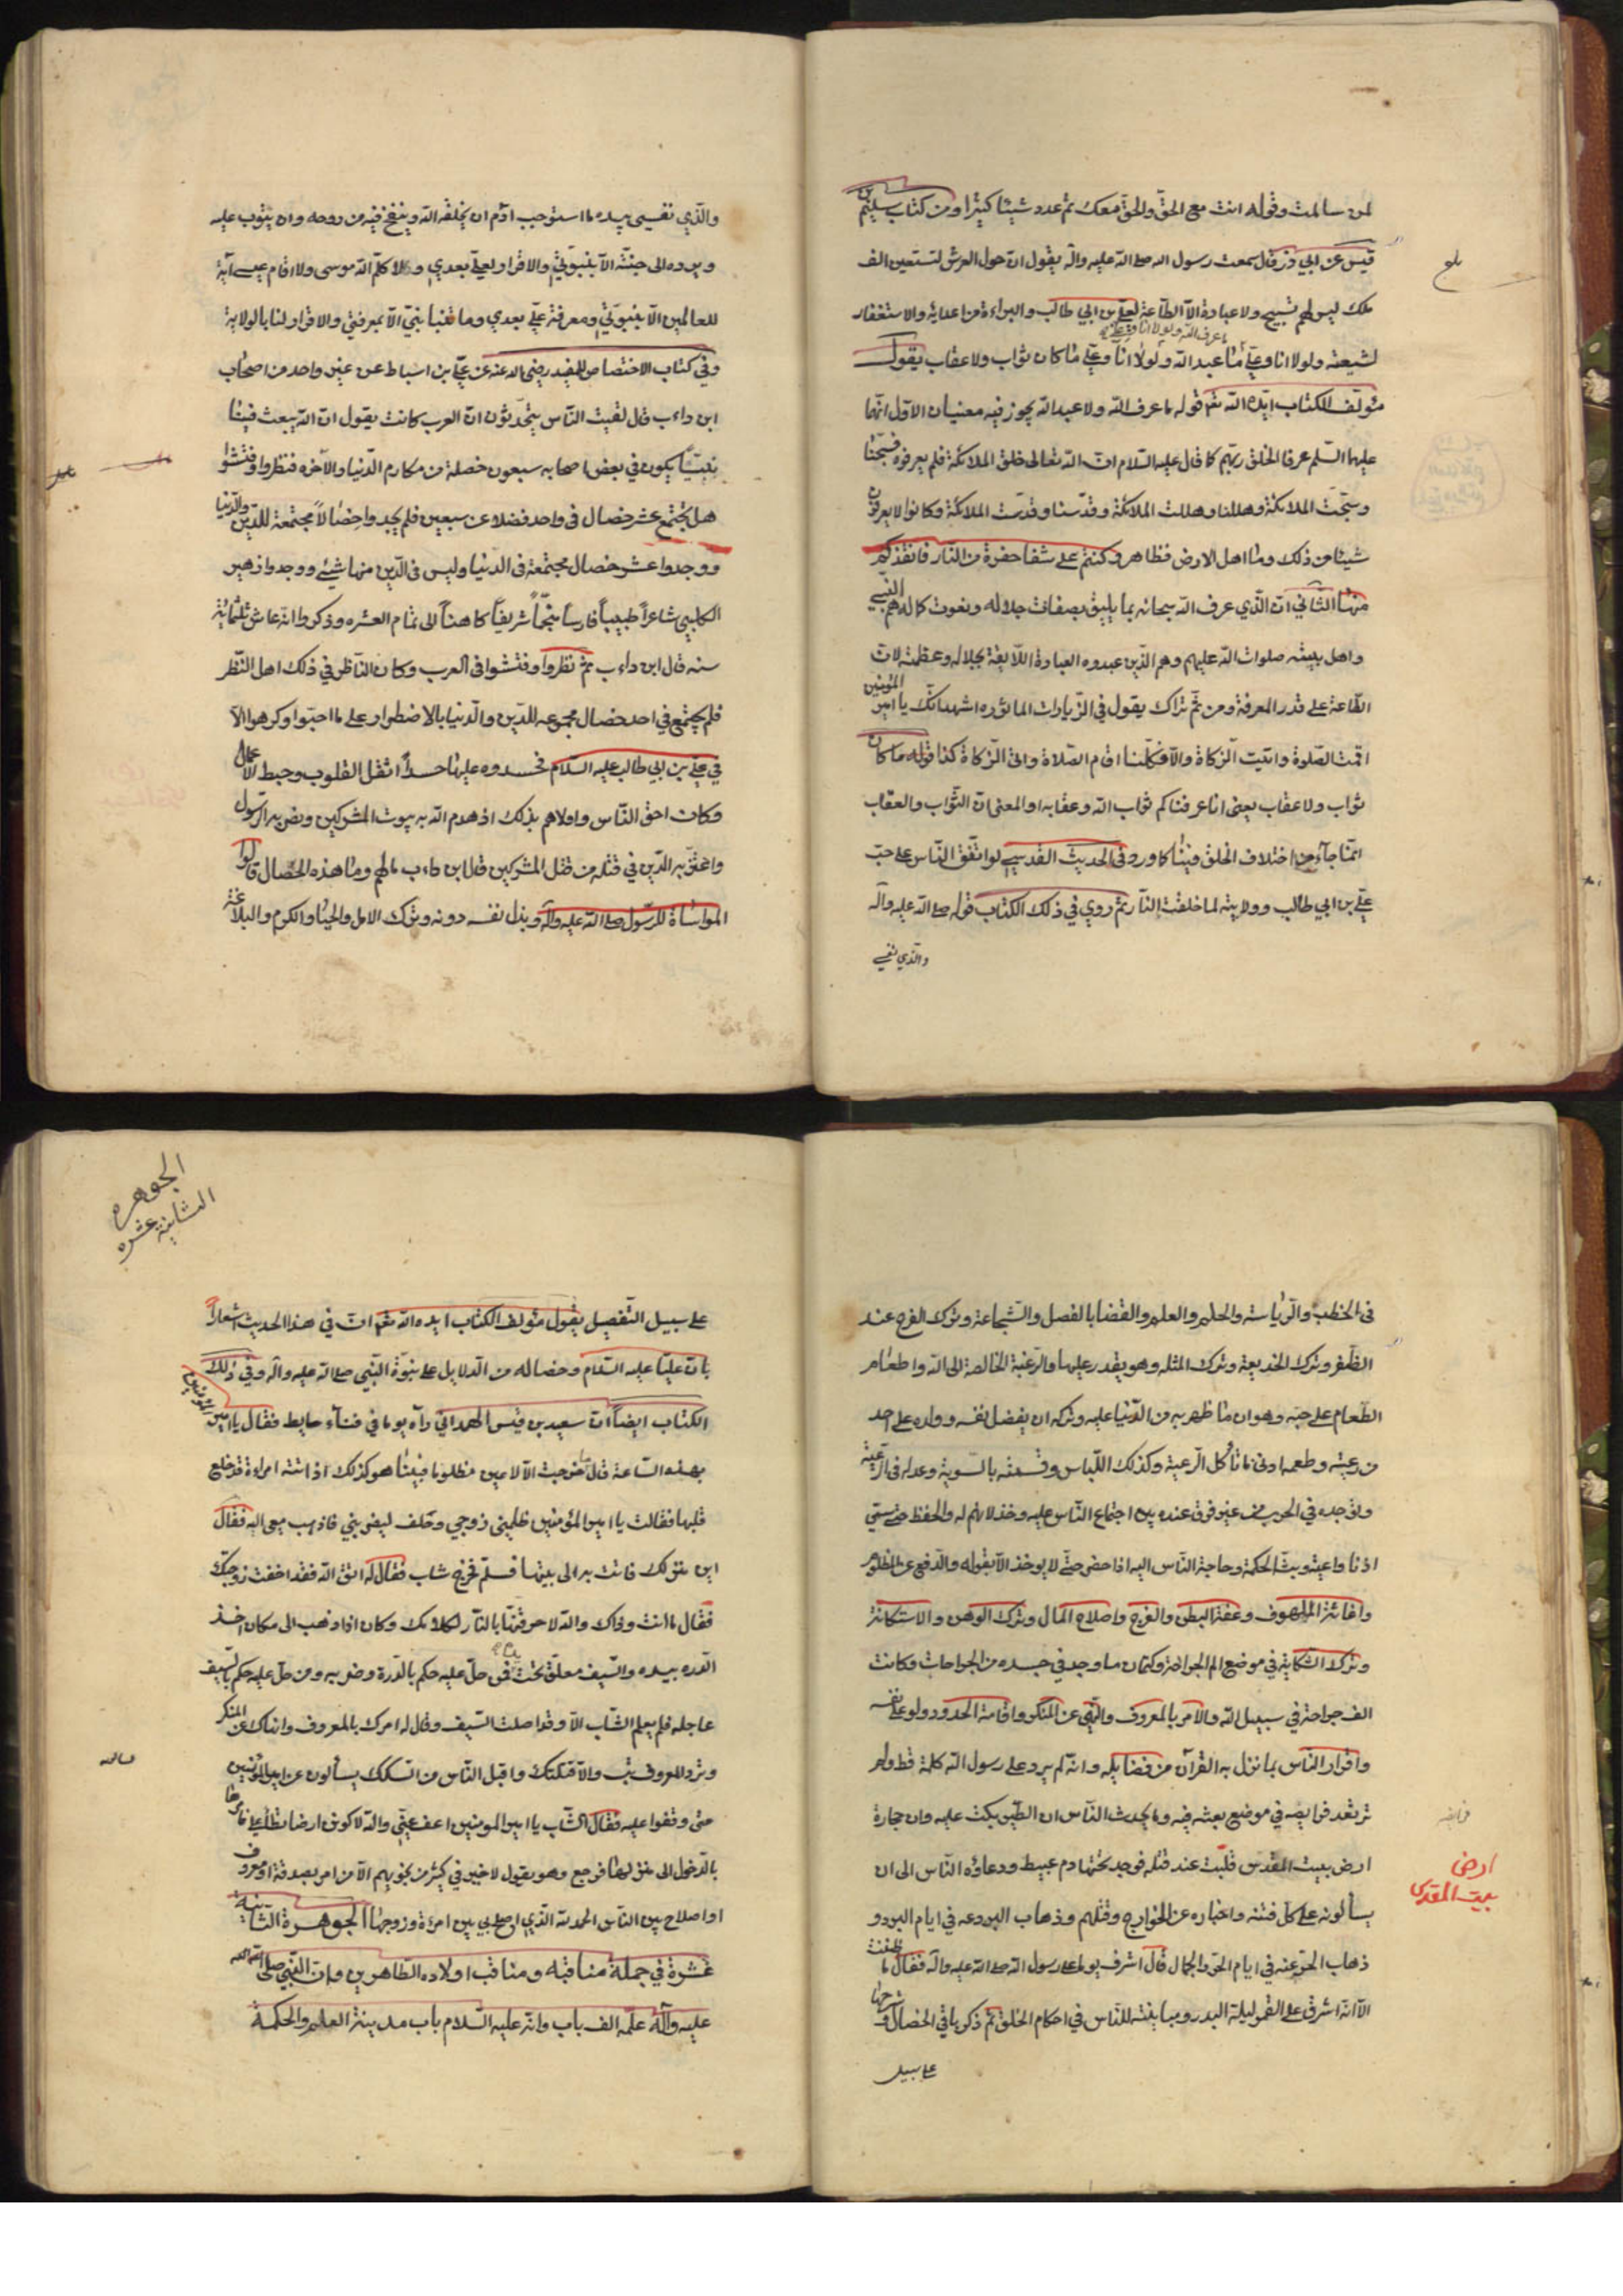 لمن سالمت وقوله انت مع الحق والحق معك ثم عدد شيئا كثيرا ومن كتاب سليم بن
قيس عن ابي ذر قال سمعت رسول الله صلى الله عليه واله يقول ان حول العرش لتسعين الف
ملك ليس لهم تسبيح ولا عبادة الا الطاعة لعلي بن ابي طالب والبراءة من اعدائه والاستغفار
لشيعته ولولا انا وعلي ما عبد الله ولولا انا وعلي ما كان ثواب ولا عقاب يقول
مؤلف الكتاب ايده الله تعه قوله ما عرف الله ولا عبد الله يجوز فيه معنيان الاول انهما
عليهما السلم عرفا الخلق ربهم كما قال عليه السلام ان الله تعالى خلق الملائكة فلم يعرفوه فسبحنا
وسبحت الملائكة وهللنا وهللت الملائكة وقدسنا وقدست الملائكة وكانوا لا يعرفون
شيئا من ذلك وما اهل الارض فظاهر وكنتم على شفا حفرة من النار فانقذكم
منها الثاني ان الذي عرف الله سبحانه بما يليق بصفات جلاله ونعوت كماله هم النبي
واهل بيته صلوات الله عليهم وهم الذين عبدوه العبادة اللايقة بجلاله وعظمته لان
الطاعة على قدر المعرفة ومن ثم تراك يقول في الزيارات الماثوره اشهد انك يا امير المؤمنين
اقمت الصلوة واتيت الزكاة والا فكلنا اقام الصلاة واتى الزكاة كذا قوله ما كان
ثواب ولا عقاب يعني انا عرفناكم ثواب الله وعقابه او المعنى ان الثواب والعقاب
انما جآء من اختلاف الخلق فينا كما ورد في الحديث القدسي لو اتفق الناس على حب
علي بن ابي طالب وولايته لما خلقت النار ثم روي في ذلك الكتاب قوله صلى الله عليه وآله
والذي نفسي
والذي نفسي بيده ما استوجب ادم ان يخلقه الله وينفخ فيه من روحه وان يتوب عليه
ويرده الى جنته الا بنبوتي والاقرار لعلي بعدي ولا كلم الله موسى ولا اقام عيسى آية
للعالمين الا بنبوتي ومعرفة علي بعدي وما تنبأ نبي الا بمعرفتي والاقرار لنا بالولاية
وفي كتاب الاختصاص للمفيد رضي الله عنه عن علي بن اسباط عن غير واحد من اصحاب
ابن داءب قال لقيت الناس يتحدثون ان العرب كانت يقول ان الله يبعث فينا
نبيا يكون في بعض اصحابه سبعون خصلة من مكارم الدنيا والاخره فنظروا وفتشوا
هل يجتمع عشر خصال في واحد فضلا عن سبعين فلم يجدوا خصالا مجتمعة للدين والدنيا
ووجدوا عشر خصال مجتمعة في الدنيا وليس في الدين منها شيئ ووجدوا زهير
الكلبي شاعرا طبيبا فارسا منجما شريفا كاهنا الى تمام العشره وذكروا انه عاش ثلثمائة
سنه قال ابن داءب ثم نظروا وفتشوا في العرب وكان الناظر في ذلك اهل النظر
فلم يجتمع في احد خصال مجموعه للدين والدنيا بالاضطرار على ما احبوا وكرهوا الا
في علي بن ابي طالب عليه السلام فحسدوه عليها حسدا اثقل القلوب وحبط الاعمال
وكان احق الناس واولاهم بذلك اذ هدم الله به بيوت المشركين ونصر به الرسول
واعتز به الدين في قتله من قتل المشركين قال ابن داءب ما لهم وما هذه الخصال قالوا
المواساة للرسول صلى الله عليه وآله وبذل نفسه دونه وترك الامل والحيا والكرم والبلاغة
في الخطب والرياسة والحلم والعلم والقضا بالفصل والشجاعة وترك الفرح عند
الظفر وترك الخديعة وترك المثله وهو يقدر عليها والرغبة الخالصة الى الله واطعام
الطعام على حبه وهوان ما ظهر به من الدنيا عليه وتركه ان يفضل نفسه وولده على احد
من رعيته وطعمه ادنى ما تأكل الرعية وكذلك اللباس وقسمته بالسوية وعدله في الرعية
اذنا واعية وبث الحكمة وحاجة الناس اليه اذا حضر حتى لا يوخذ الا بقوله والدفع عن المظلوم
واغاثة الملهوف وعفة البطن والفرج واصلاح المال وترك الوهن والاستكانة
وترك الشكاية في موضع الم الجراحة وكتمان ما وجد في جسده من الجراحات وكانت
الف جراحة في سبيل الله والامر بالمعروف والنهي عن المنكر واقامة الحدود ولو على نفسه
واقرار الناس بما نزل به القرآن من فضايله وانه لم يرد على رسول الله كلمة قط ولم
ترتعد فرايصه في موضع بعثه فيه وما يحدث الناس ان الطير بكت عليه وان حجارة
ارض بيت المقدس قلبت عند قتله فوجد تحتها دم عبيط ودعاؤه الناس الى ان
يسألونه على كل فتنه واخباره عن الخوارج وقتلهم وذهاب البرد عنه في ايام البرد و
ذهاب الحر عنه في ايام الحر والجمال قال اشرف يوما على رسول الله صلى الله عليه وآله فقال ما ظننت
الا انه اشرق على القمر ليلة البدر ومباينته للناس في احكام الخلق ثم ذكر باقي الخصال وشرحها
على سبيل
ارض
بيت المقدس
الجوهره
الثانية عشره
على سبيل التفصيل يقول مؤلف الكتاب ايده الله تعه ان في هذا الحديث اشعارا
بان عليا عليه السلام وخصاله من الدلايل على نبوة النبي صلى الله عليه وآله وفي ذلك
الكتاب ايضا ان سعيد بن قيس الهمداني رآه يوما في فنآء حايط فقال يا امير المؤمنين
بهذه الساعة قال ما خرجت الا لاعين مظلوما فبينا هو كذلك اذ اتته امراءة قد خلع
قلبها فقالت يا امير المؤمنين ظلمني زوجي وحلف ليضربني فاذهب معي اليه فقال
اين منزلك فاتت به الى بيتها فسلم فخرج شاب فقال له اتق الله فقد اخفت زوجتك
فقال ما انت وذاك والله لاحرقنها بالنار لكلامك وكان اذا ذهب الى مكان اخذ
الدره بيده والسيف معلق تحت يده فمن حل عليه حكم بالدرة وضربه ومن حل عليه حكم بالسيف
عاجله فلم يعلم الشاب الا وقد اصلت السيف وقال له امرك بالمعروف وانهاك عن المنكر
وترد المعروف تب والا قتلتك واقبل الناس من السكك يسألون عن امير المؤمنين
حتى وقفوا عليه فقال الشاب يا امير المومنين اعف عني والله لاكونن ارضا تطأني فامرها
بالدخول الى منزلها فرجع وهو يقول لا خير في كثير من نجويهم الا من امر بصدقة او معروف
او اصلاح بين الناس الحمد لله الذي اصلح بي بين امرءة وزوجها الجوهرة الثانية
عشرة في جملة مناقبه ومناقب اولاده الطاهرين وان النبي صلى الله
عليه وآله علمه الف باب وانه عليه السلام باب مدينة العلم والحكمة